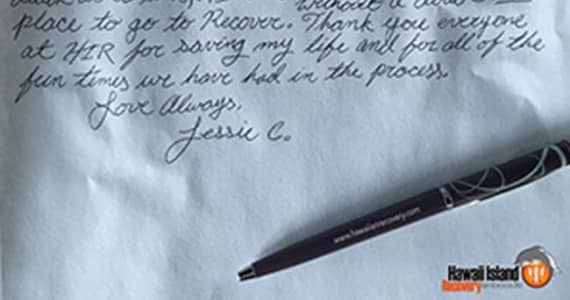 without a
place to go to Recover. Thank you everyone
at HIR for saving my life and for all of the
fun times we have had in the process.
Love Always,
Jessie C.
www.hawaiianrecovery.com
Hawaii Island
Recovery